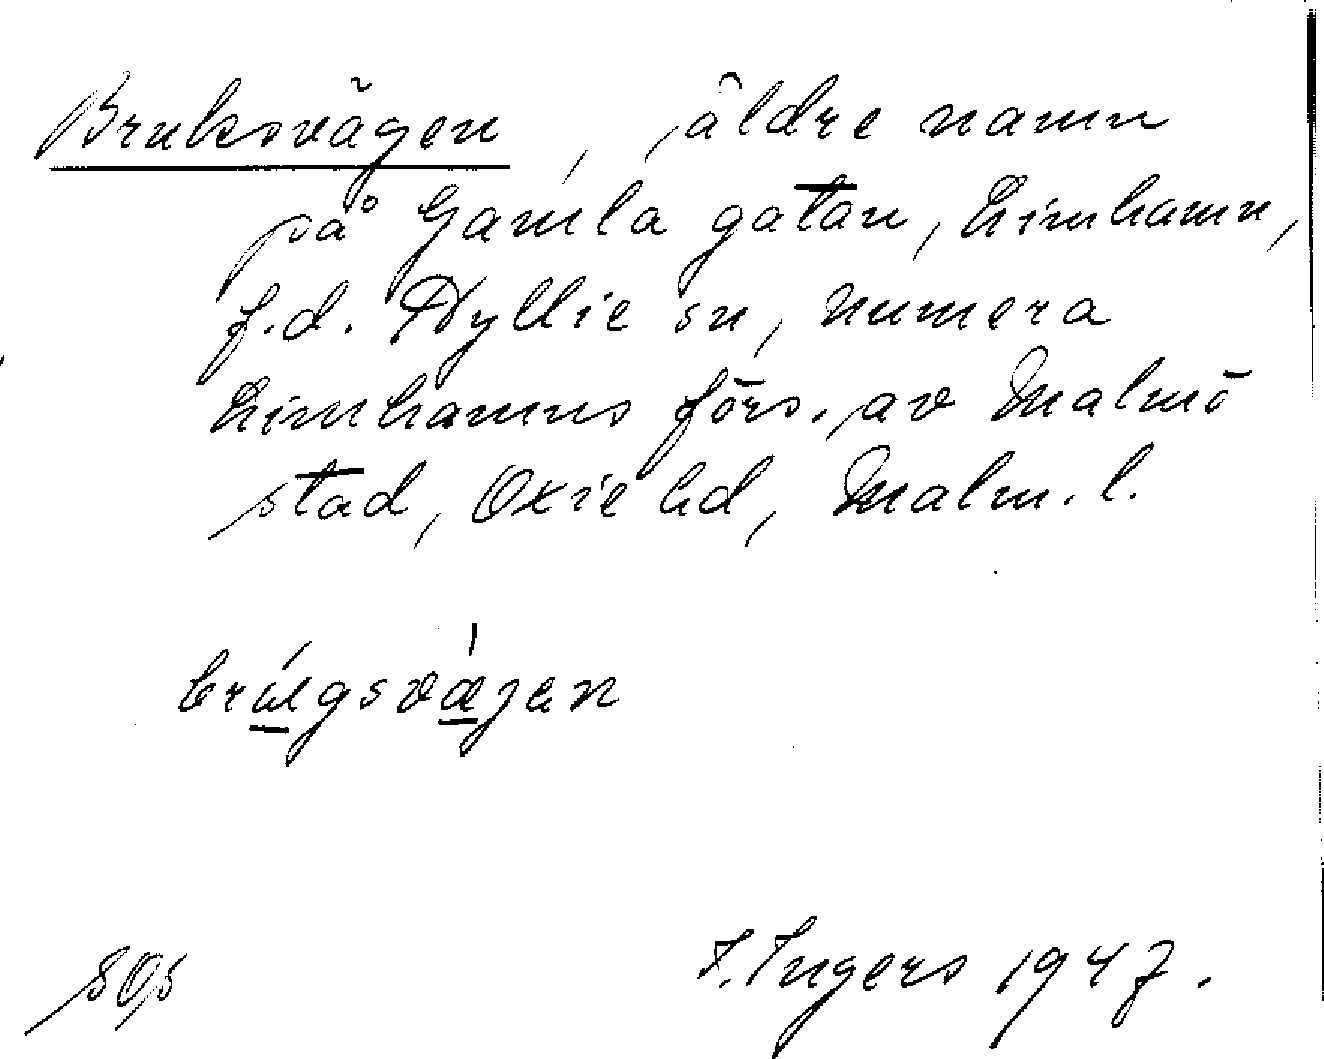 Bruksvägen, äldre namn
på Gamla gatan, Limhamn,
f.d. Hyllie sn, numera
Limhamns förs. av Malmö
stad, Oxie hd, Malm. l.
brúgsvä́jen
I. Ingers 1947.